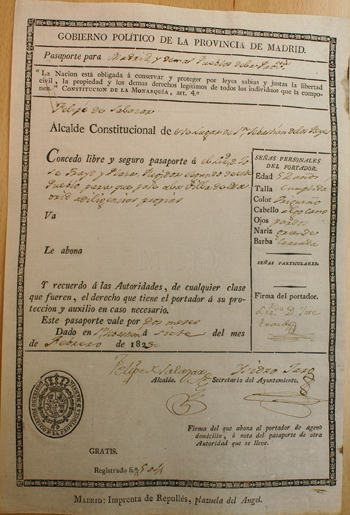 GOBIERNO POLÍTICO DE LA PROVINCIA DE MADRID.
Pasaporte para Madrid y demas Pueblos de la
"La Nacion está obligada á conservar y proteger por leyes sabias y justas la libertad
civil, la propiedad y los demas derechos legítimos de todos los individuos que la compo-
nen." CONSTITUCION DE LA MONARQUÍA, art. 4.º
Felipe de Salazar
Alcalde Constitucional de este Lugar de Sn Sebastian de los Reyes
Concedo libre y seguro pasaporte á
Pueblo para que pase á la Villa de Ma
drid diligencias propias
Va
Le abona
Y recuerdo á las Autoridades, de cualquier clase
que fueren, el derecho que tiene el portador á su pro-
teccion y auxilio en caso necesario.
Este pasaporte vale por dos meses
Dado en á siete del mes
de Febrero de 182
SEÑAS PERSONALES
DEL PORTADOR.
Edad
Talla Cumplida
Color Trigueño
Cabello
Ojos Pardos
Nariz
Barba Cerrada
SEÑAS PARTICULARES.
Firma del portador.
Felipe Salazar
Alcalde.
Isidro
Secretario del Ayuntamiento.
Firma del que abona al portador de ageno
domicilio, á nota del pasaporte de otra
Autoridad que se lleve.
GRATIS.
Registrado fº
MADRID: Imprenta de Repullés, plazuela del Angel.